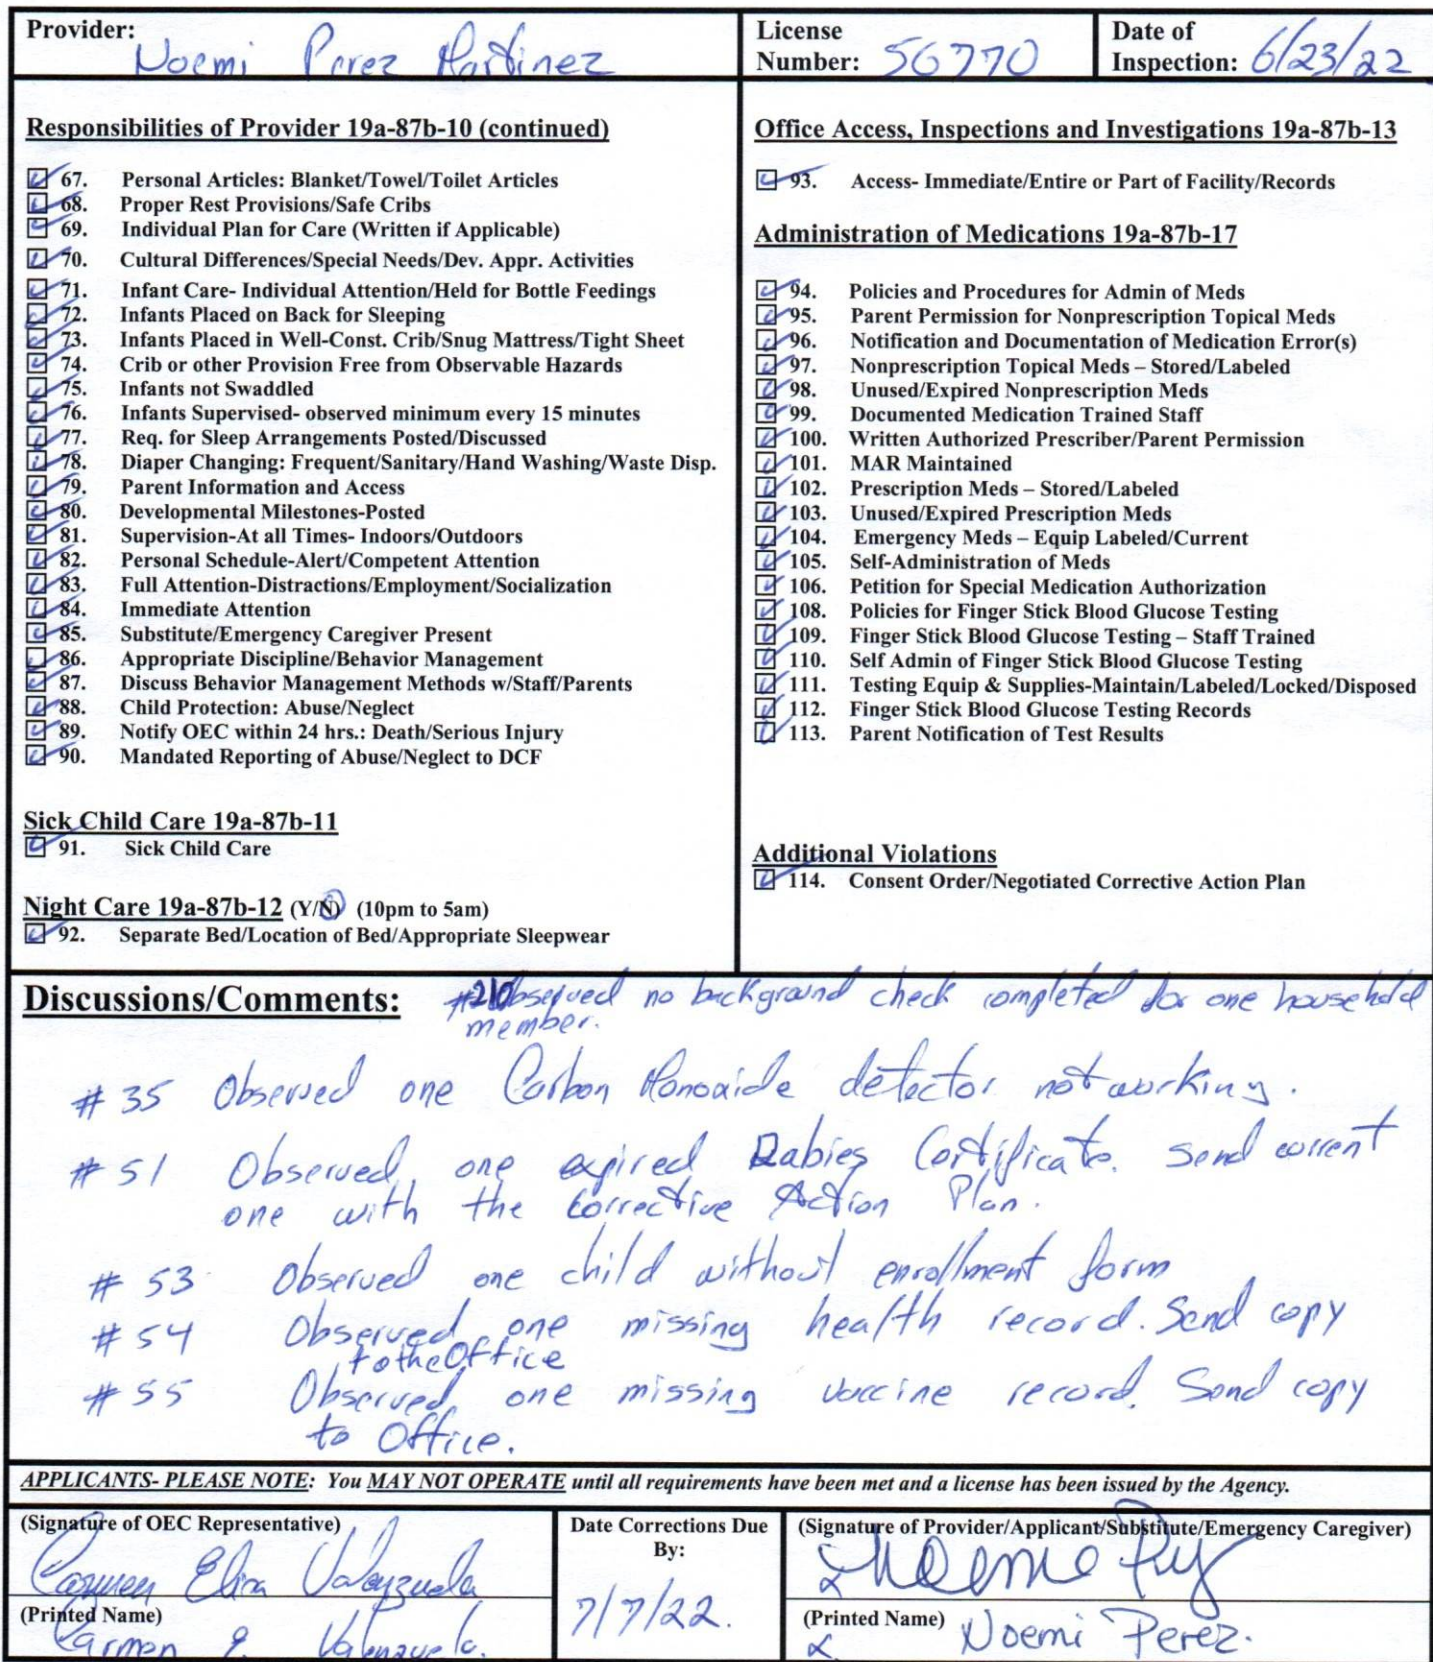 Provider: Noemi Perez Martinez
License Number: 56770
Date of Inspection: 6/23/22
Responsibilities of Provider 19a-87b-10 (continued)
67. Personal Articles: Blanket/Towel/Toilet Articles
68. Proper Rest Provisions/Safe Cribs
69. Individual Plan for Care (Written if Applicable)
70. Cultural Differences/Special Needs/Dev. Appr. Activities
71. Infant Care- Individual Attention/Held for Bottle Feedings
72. Infants Placed on Back for Sleeping
73. Infants Placed in Well-Const. Crib/Snug Mattress/Tight Sheet
74. Crib or other Provision Free from Observable Hazards
75. Infants not Swaddled
76. Infants Supervised- observed minimum every 15 minutes
77. Req. for Sleep Arrangements Posted/Discussed
78. Diaper Changing: Frequent/Sanitary/Hand Washing/Waste Disp.
79. Parent Information and Access
80. Developmental Milestones-Posted
81. Supervision-At all Times- Indoors/Outdoors
82. Personal Schedule-Alert/Competent Attention
83. Full Attention-Distractions/Employment/Socialization
84. Immediate Attention
85. Substitute/Emergency Caregiver Present
86. Appropriate Discipline/Behavior Management
87. Discuss Behavior Management Methods w/Staff/Parents
88. Child Protection: Abuse/Neglect
89. Notify OEC within 24 hrs.: Death/Serious Injury
90. Mandated Reporting of Abuse/Neglect to DCF
Sick Child Care 19a-87b-11
91. Sick Child Care
Night Care 19a-87b-12 (Y/N) (10pm to 5am)
92. Separate Bed/Location of Bed/Appropriate Sleepwear
Office Access, Inspections and Investigations 19a-87b-13
93. Access- Immediate/Entire or Part of Facility/Records
Administration of Medications 19a-87b-17
94. Policies and Procedures for Admin of Meds
95. Parent Permission for Nonprescription Topical Meds
96. Notification and Documentation of Medication Error(s)
97. Nonprescription Topical Meds – Stored/Labeled
98. Unused/Expired Nonprescription Meds
99. Documented Medication Trained Staff
100. Written Authorized Prescriber/Parent Permission
101. MAR Maintained
102. Prescription Meds – Stored/Labeled
103. Unused/Expired Prescription Meds
104. Emergency Meds – Equip Labeled/Current
105. Self-Administration of Meds
106. Petition for Special Medication Authorization
108. Policies for Finger Stick Blood Glucose Testing
109. Finger Stick Blood Glucose Testing – Staff Trained
110. Self Admin of Finger Stick Blood Glucose Testing
111. Testing Equip & Supplies-Maintain/Labeled/Locked/Disposed
112. Finger Stick Blood Glucose Testing Records
113. Parent Notification of Test Results
Additional Violations
114. Consent Order/Negotiated Corrective Action Plan
Discussions/Comments: Observed no background check completed for one household
member.
# 35 Observed one Carbon Monoxide detector not working.
# 51 Observed one expired Rabies Certificate. Send current
one with the Corrective Action Plan.
# 53 Observed one child without enrollment form
# 54 Observed one missing health record. Send copy
to the Office
# 55 Observed one missing vaccine record. Send copy
to Office.
APPLICANTS- PLEASE NOTE: You MAY NOT OPERATE until all requirements have been met and a license has been issued by the Agency.
(Signature of OEC Representative)
Carmen Elisa Valenzuela
(Printed Name)
Carmen E. Valenzuela.
Date Corrections Due
By:
7/7/22.
(Signature of Provider/Applicant/Substitute/Emergency Caregiver)
(Printed Name) Noemi Perez.